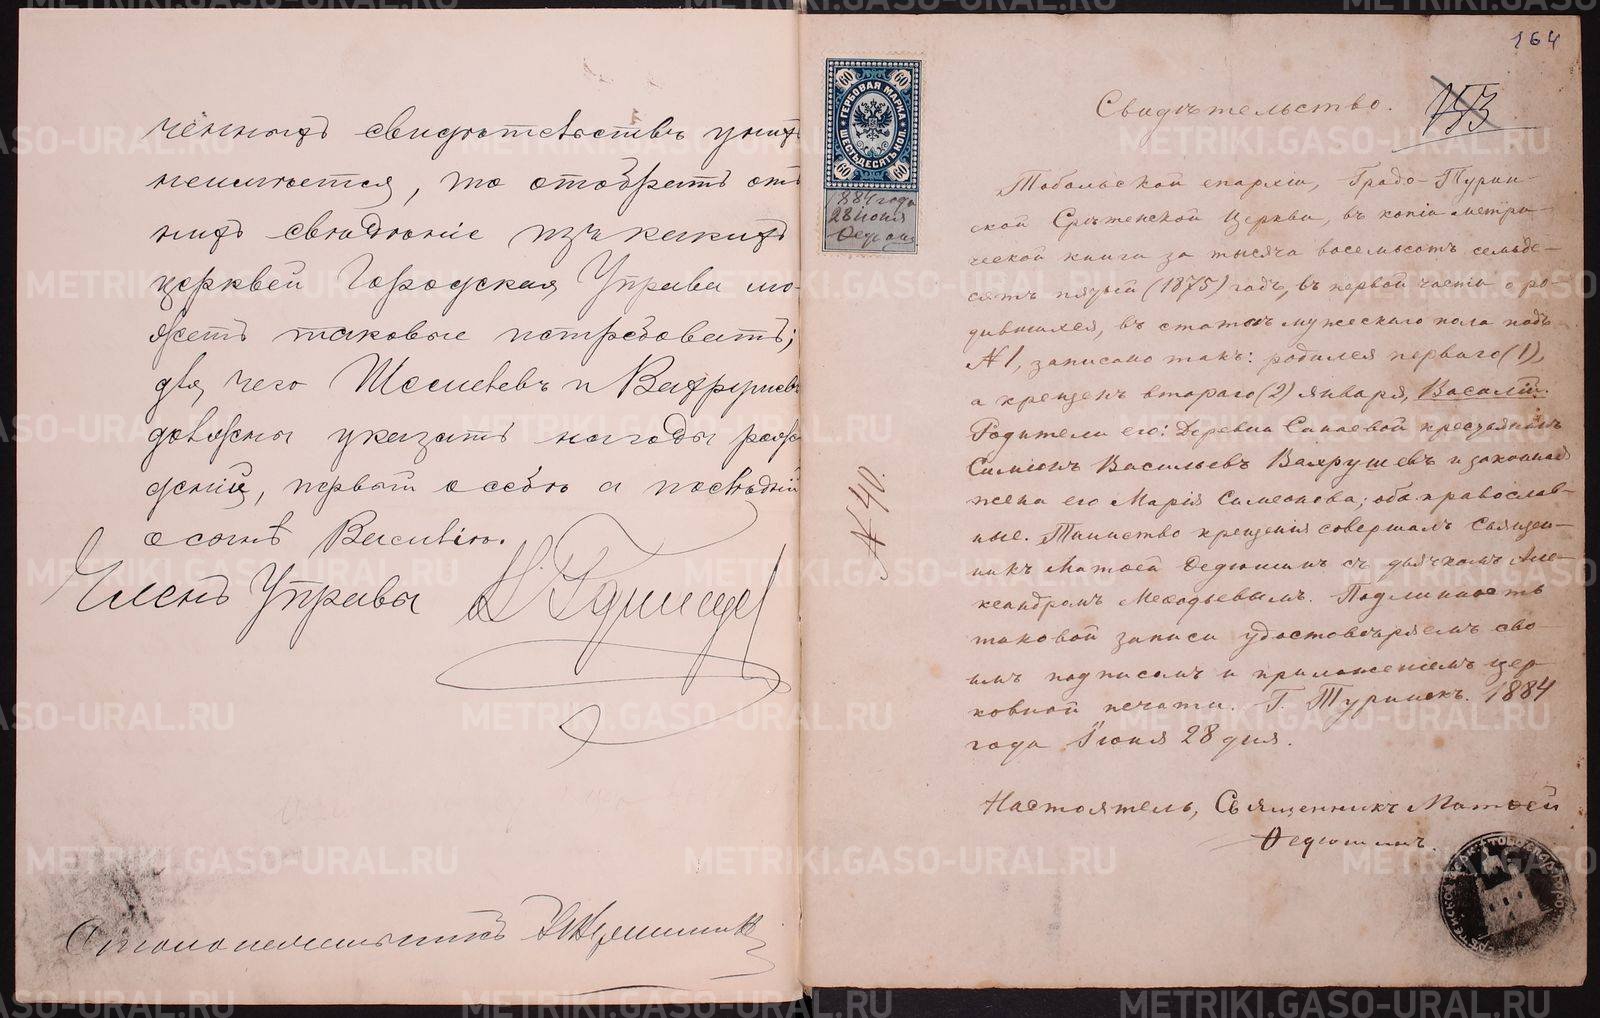 ченныхъ свидѣтельствъ у нихъ
неимѣется, то отобрать отъ
нихъ свѣдѣніе изъ какихъ
церквей Городская Управа мо-
жетъ таковые истребовать;
для чего и Вахрушевъ
должны указать нагоды рож
деній, первый о себѣ а послѣдній
о сынѣ Василіѣ.
Членъ Управы
Столоначальникъ
164
153
ГЕРБОВАЯ МАРКА
ШЕСТЬДЕСЯТЪ КОП.
60 60
60 60
1884 года
28 Іюня
Ѳедюшинъ
№ 40.
Свидѣтельство.
Тобольской епархіи, Градо-Турин-
ской Срѣтенской Церкви, въ копіи метри-
ческой книги за тысяча восемьсотъ семьде-
сятъ пятый (1875) годъ, въ первой части о ро-
дившихся, въ статьѣ мужескаго пола подъ
№ 1, записано такъ: родился перваго (1),
а крещенъ втораго (2) января, Василій.
Родители его: Деревни Санаевой крестьянинъ
Симіонъ Васильевъ Вахрушевъ и законная
жена его Марія Симеонова; оба православ-
ные. Таинство крещенія совершалъ Священ-
никъ Матѳей Ѳедюшинъ съ дьячкомъ Але-
ксандромъ Меѳодьевымъ. Подлинность
таковой записи удостовѣряемъ сво-
имъ подписомъ и приложеніемъ цер-
ковной печати. Г. Туринскъ. 1884
года Іюня 28 дня.
Настоятель, Священникъ Матѳей
Ѳедюшинъ.
METRIKI.GASO-URAL.RU